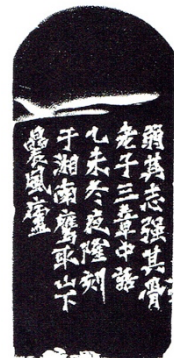 弱其志强其骨
老子三章中語
乙未冬夜隆刻
于湘南鷹取山下
晨風廬